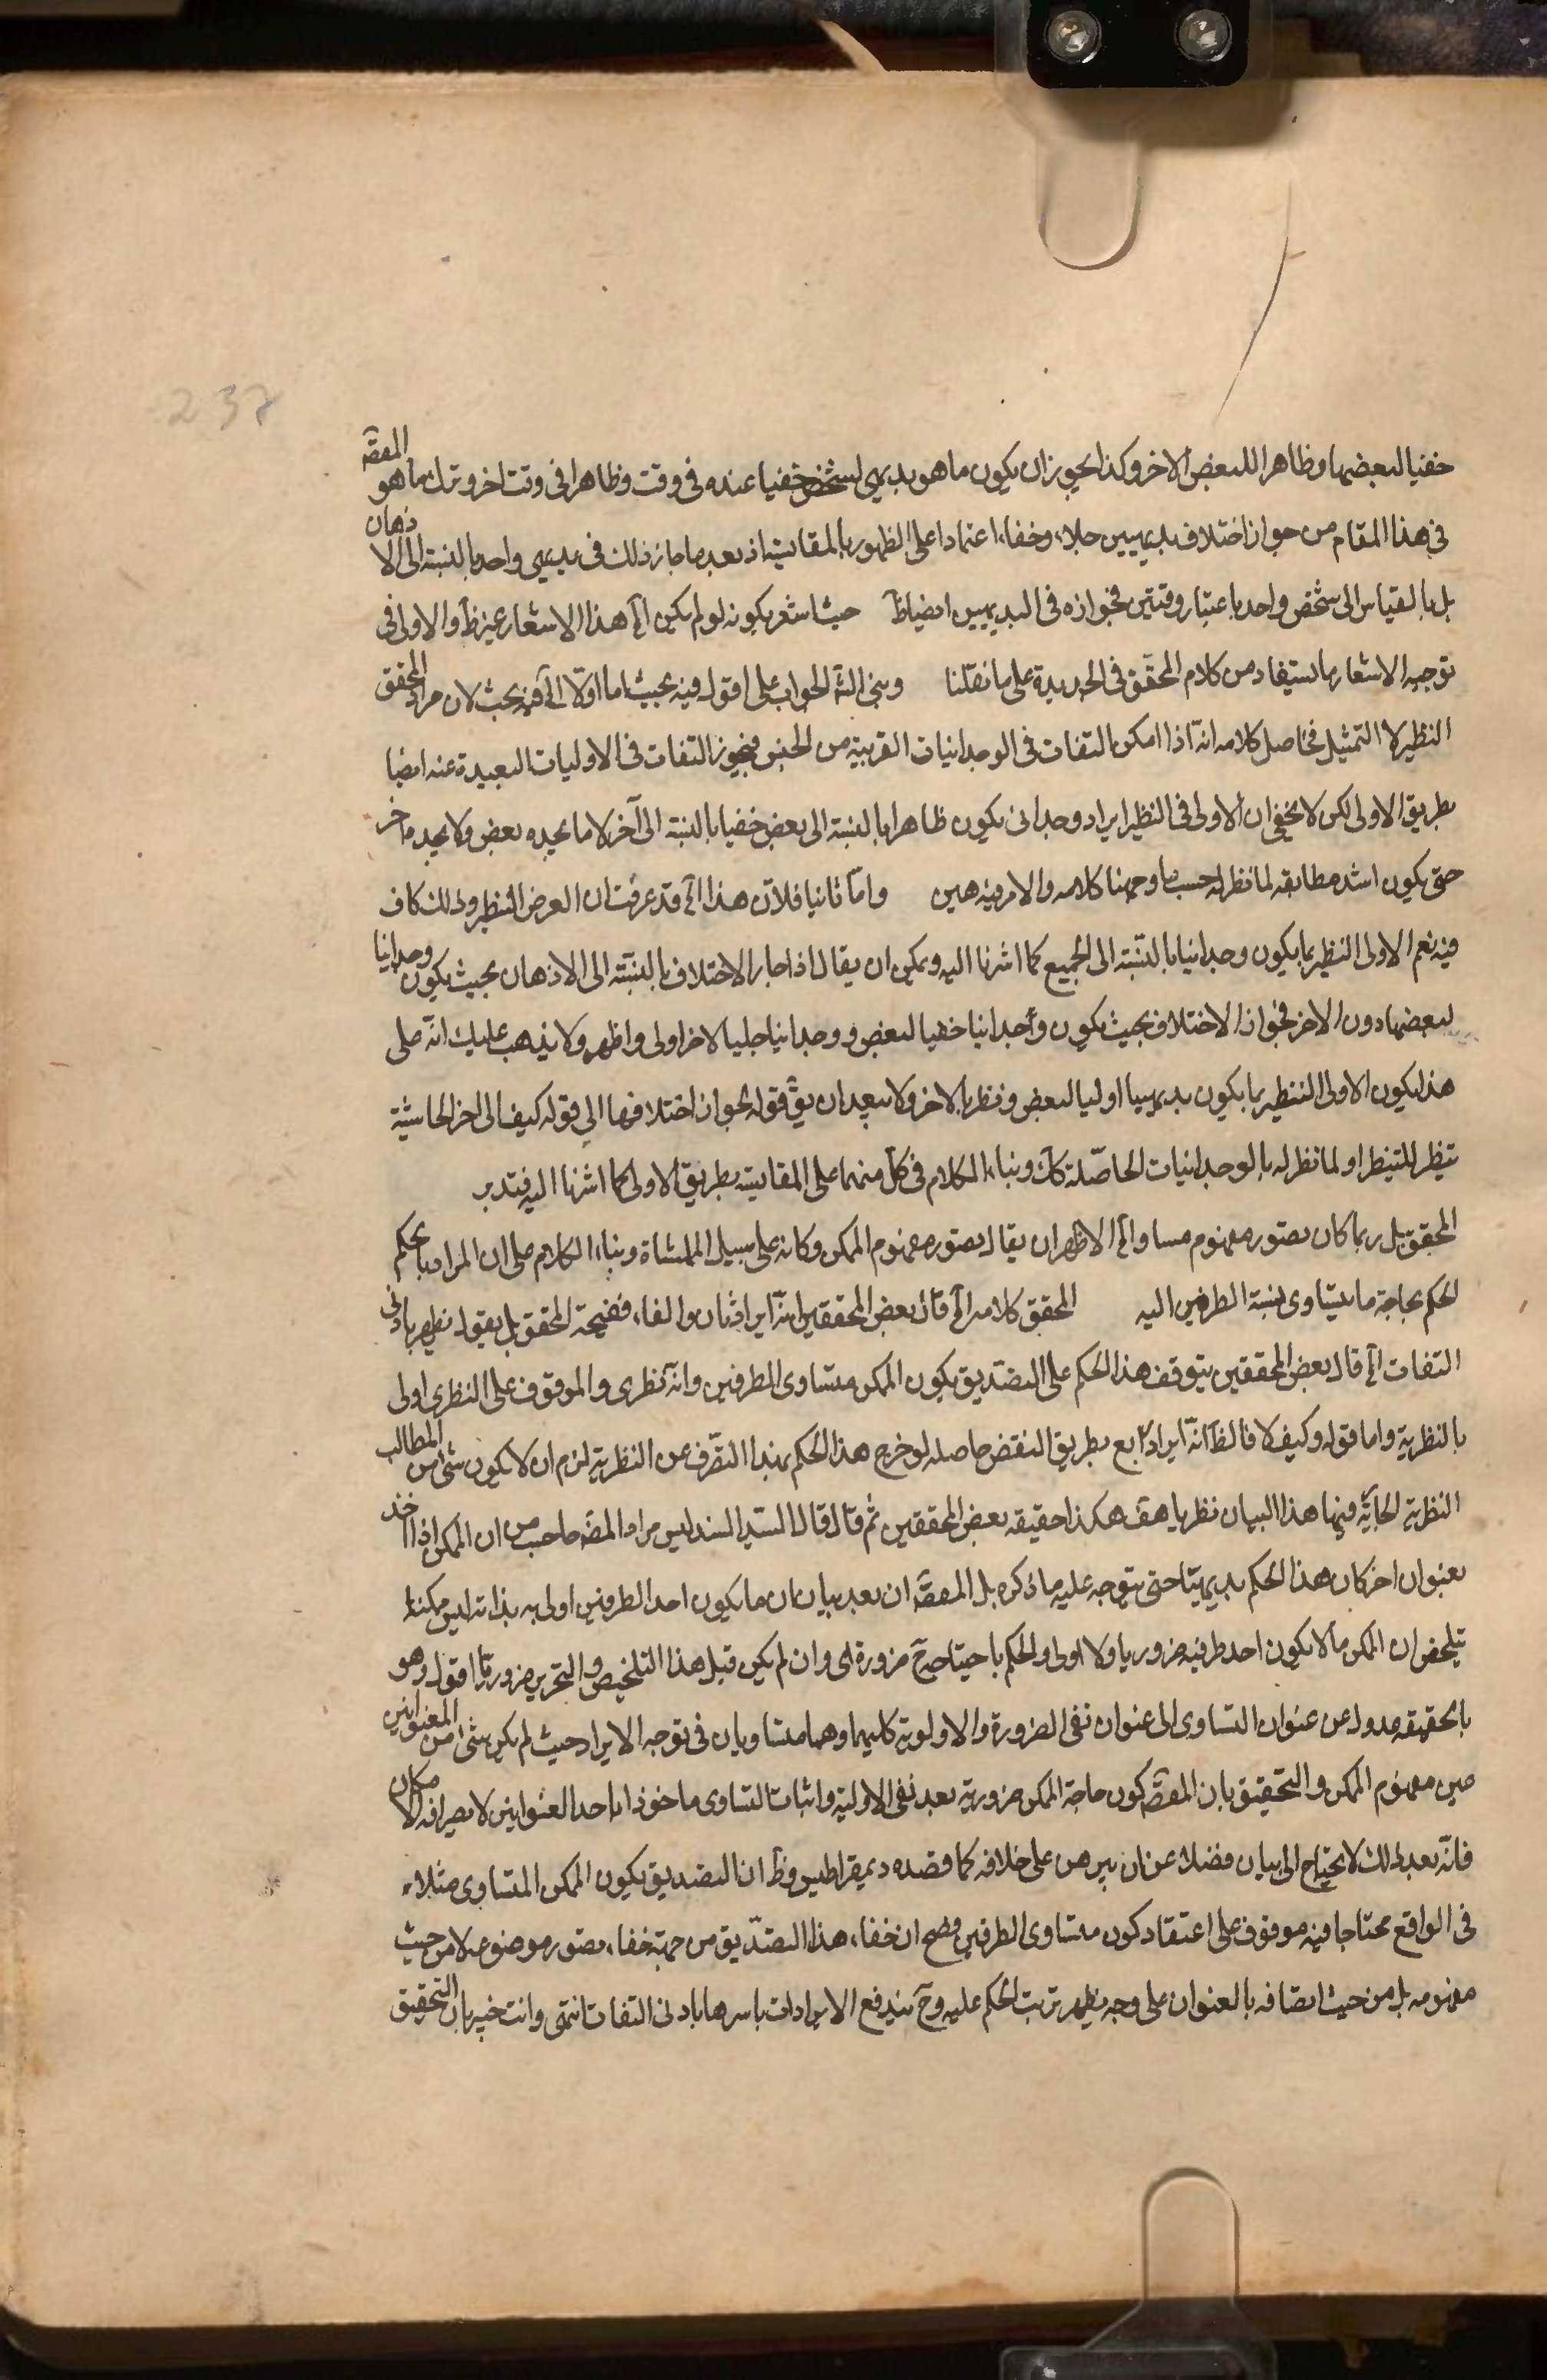 237
خفيا لبعضها وظاهرا للبعض الاخر وكذا يجوز ان يكون ما هو بديهى لشخص خفيا عنده فى وقت وظاهرا فى وقت اخر وترك ما هو المقصّ
فى هذا المقام من جواز اختلاف بديهيين جلاء وخفاء اعتمادا على الظهور بالمقايسة اذ بعد ما جاز ذلك فى بديهى واحد بالنسبة الى الاذهان
بل بالقياس الى شخص واحد باعتبار وقتين فجوازه فى البديهيين ايضا ظ حيث اشعر بكونه لو لم يكن اﻟﺦ هذا الاشعار غير ظ والاولى فى
توجيه الاشعار ما يستفاد من كلام المحقق فى الجديدة على ما نقلنا وبنى الجواب على اقول فيه بحيث اما اولا اﻟﺦ فيه بحث لان مراد المحقق
النظير لا التمثيل فحاصل كلامه انّه اذا امكن التفات فى الوجدانيات القريبة من الحس فيجوز التفات فى الاوليات البعيدة عنه ايضا
بطريق الاولى لكن لا يخفى ان الاولى فى النظير ايراد وجدانى يكون ظاهرا بالنسبة الى بعض خفيا بالنسبة الى آخر لا ما يجده بعض ولا يجده اخر
حتى يكون اشد مطابقة لما نظر له حسب ما وجهنا كلامه والامر فيه هين وامّا ثانيا فلانّ هذا اﻟﺦ قد عرفت ان الغرض التنظير وذلك كاف
فيه نعم الاولى النظير بما يكون وجدانيا بالنسبة الى الجميع كما اشرنا اليه ويمكن ان يقال اذا جاز الاختلاف بالنسبة الى الاذهان بحيث يكون وجدانيا
لبعضها دون الاخر فجواز الاختلاف بحيث يكون وجدانيا خفيا لبعض ووجدانيا جليا لاخر اولى واظهر ولا يذهب عليك انّه على
هذا يكون الاولى التنظير بما يكون بديهيا اوليا لبعض ونظريا لاخر ولا يبعد ان يق قوله بجواز اختلافها الى قوله كيف الى اخر الحاشية
تنظير للتنظير او لما نظر له بالوجدانيات الحاصلة كك وبناء الكلام فى كل منهما على المقايسة بطريق الاولى كما اشرنا اليه فتدبر
المحقق بل ربما كان بصور مفهوم مساو اﻟﺦ الاظهر ان يقال بصور مفهوم الممكن وكانه على سبيل المماشاة وبناء الكلام على ان المراد بالحكم
الحكم بحاجة ما يتساوى نسبة الطرفين اليه المحقق كلامه اﻟﺦ قال بعض المحققين انّه ايراد ثان والفاء فضيحة المحقق بل يقول يظهر بادنى
التفات اﻟﺦ قال بعض المحققين يتوقف هذا الحكم على التصديق بكون الممكن متساوى الطرفين وانّه نظرى والموقوف على النظرى اولى
بالنظرية واما قوله وكيف لا فالظ انّه ايراد رابع بطريق النقض حاصله لو خرج هذا الحكم بهذا التصرف عن النظرية لزم ان لا يكون شئ من المطالب
النظرية فيها هذا البيان نظريا هف هكذا حقيقه بعض المحققين ثم قال قال السيد السند ليس مراد المصّ ان الممكن اذا اخذ
بعنوان اخر كان هذا الحكم بديهيا حتى يتوجه عليه ما ذكره بل المقصّ ان بعد بيان ان ما يكون احد الطرفين اولى به بذاته ليس ممكنا
يتلخص ان الممكن ما لا يكون احد طرفيه ضروريا ولا اولى والحكم باحتياجه ح ضرورى وان لم يكن قبل هذا التلخيص والتحرير ضروريا اقول وهو
بالحقيقة عدول عن عنوان التساوى الى عنوان نفى الضرورة والاولوية كليهما وهما متساويان فى توجه الايراد حيث لم يكن شئ من العنوانين
عين مفهوم الممكن والتحقيق بان المقصّ كون حاجة الممكن ضرورية بعد نفى الاولية واثبات التساوى ماخوذا باحد العنوانين لا بصرافة الامكان
فانّه بعد ذلك لا يحتاج الى بيان فضلا عن ان يبرهن على خلافه كما قصده ديمقراطيس وظ ان التصديق بكون الممكن المتساوى مثلا
فى الواقع محتاجا فيه موقوف على اعتقاد كون متساوى الطرفين فصح ان خفاء هذا التصديق من جهة خفاء تصور موضوعه لا من حيث
مفهومه بل من حيث اتصافه بالعنوان على وجه يظهر ترتب الحكم عليه وح يندفع الايرادات باسرها بادنى التفات انتهى وانت خبير بان التحقيق